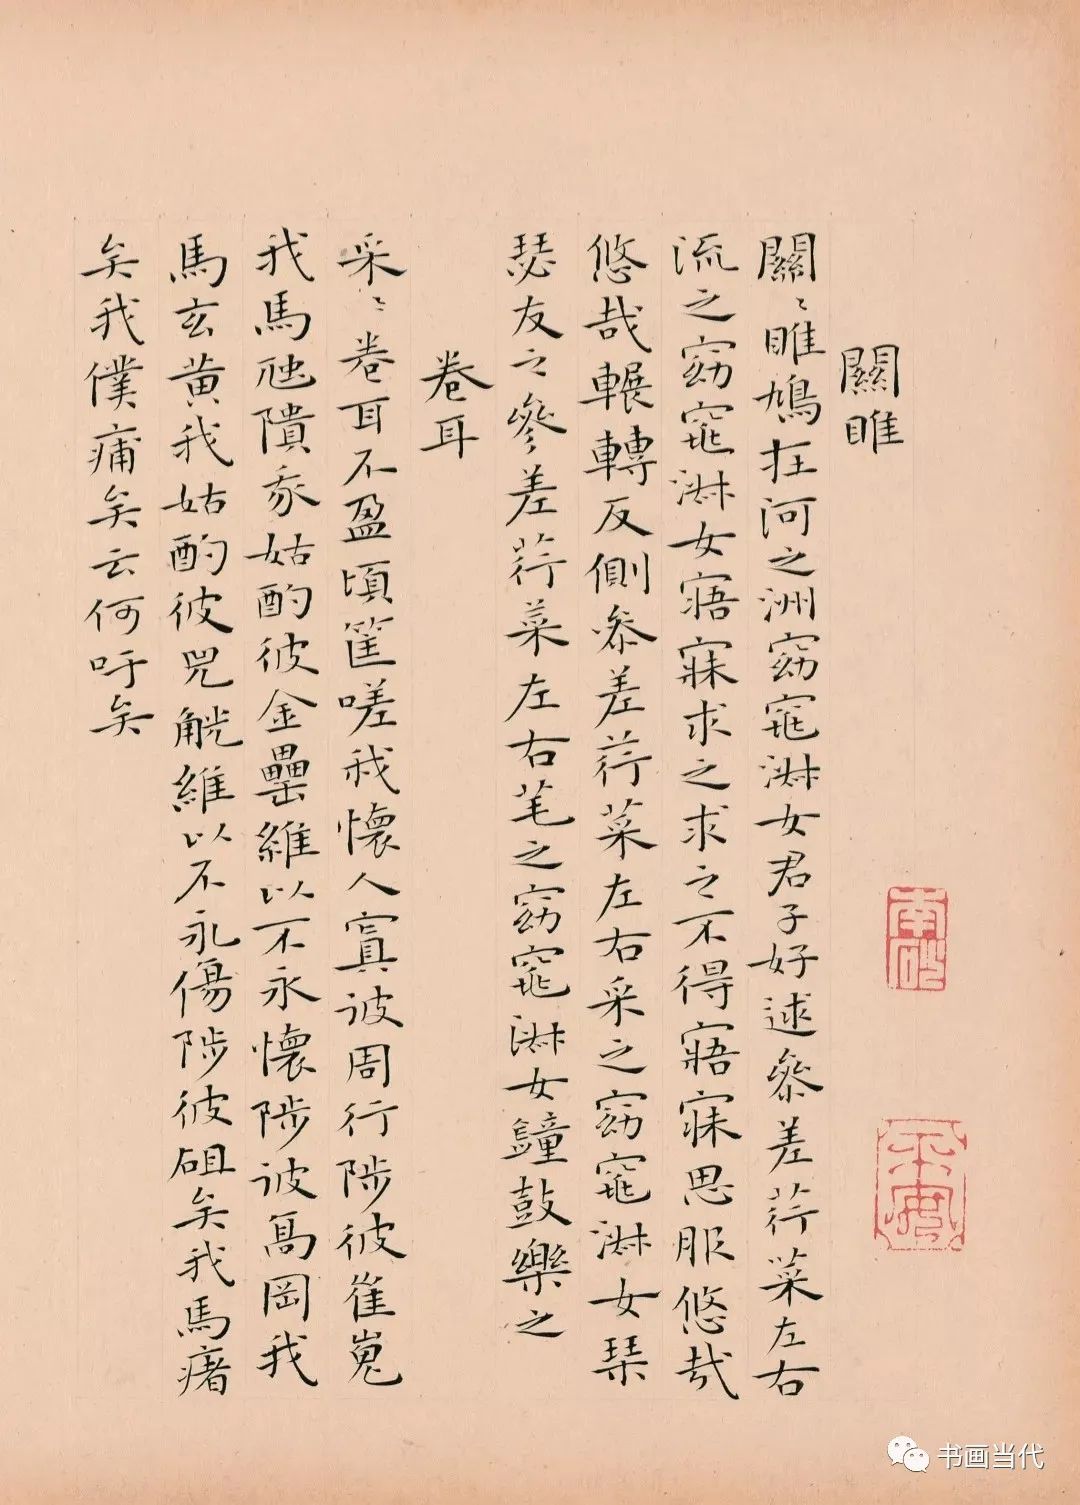 關雎
關〻雎鳩在河之洲窈窕淑女君子好逑參差荇菜左右
流之窈窕淑女寤寐求之求之不得寤寐思服悠哉
悠哉輾轉反側參差荇菜左右采之窈窕淑女琴
瑟友之參差荇菜左右芼之窈窕淑女鐘鼓樂之
卷耳
采〻卷耳不盈頃筐嗟我懷人寘彼周行陟彼崔嵬
我馬虺隤我姑酌彼金罍維以不永懷陟彼高岡我
馬玄黃我姑酌彼兕觥維以不永傷陟彼砠矣我馬瘏
矣我僕痡矣云何吁矣
书画当代